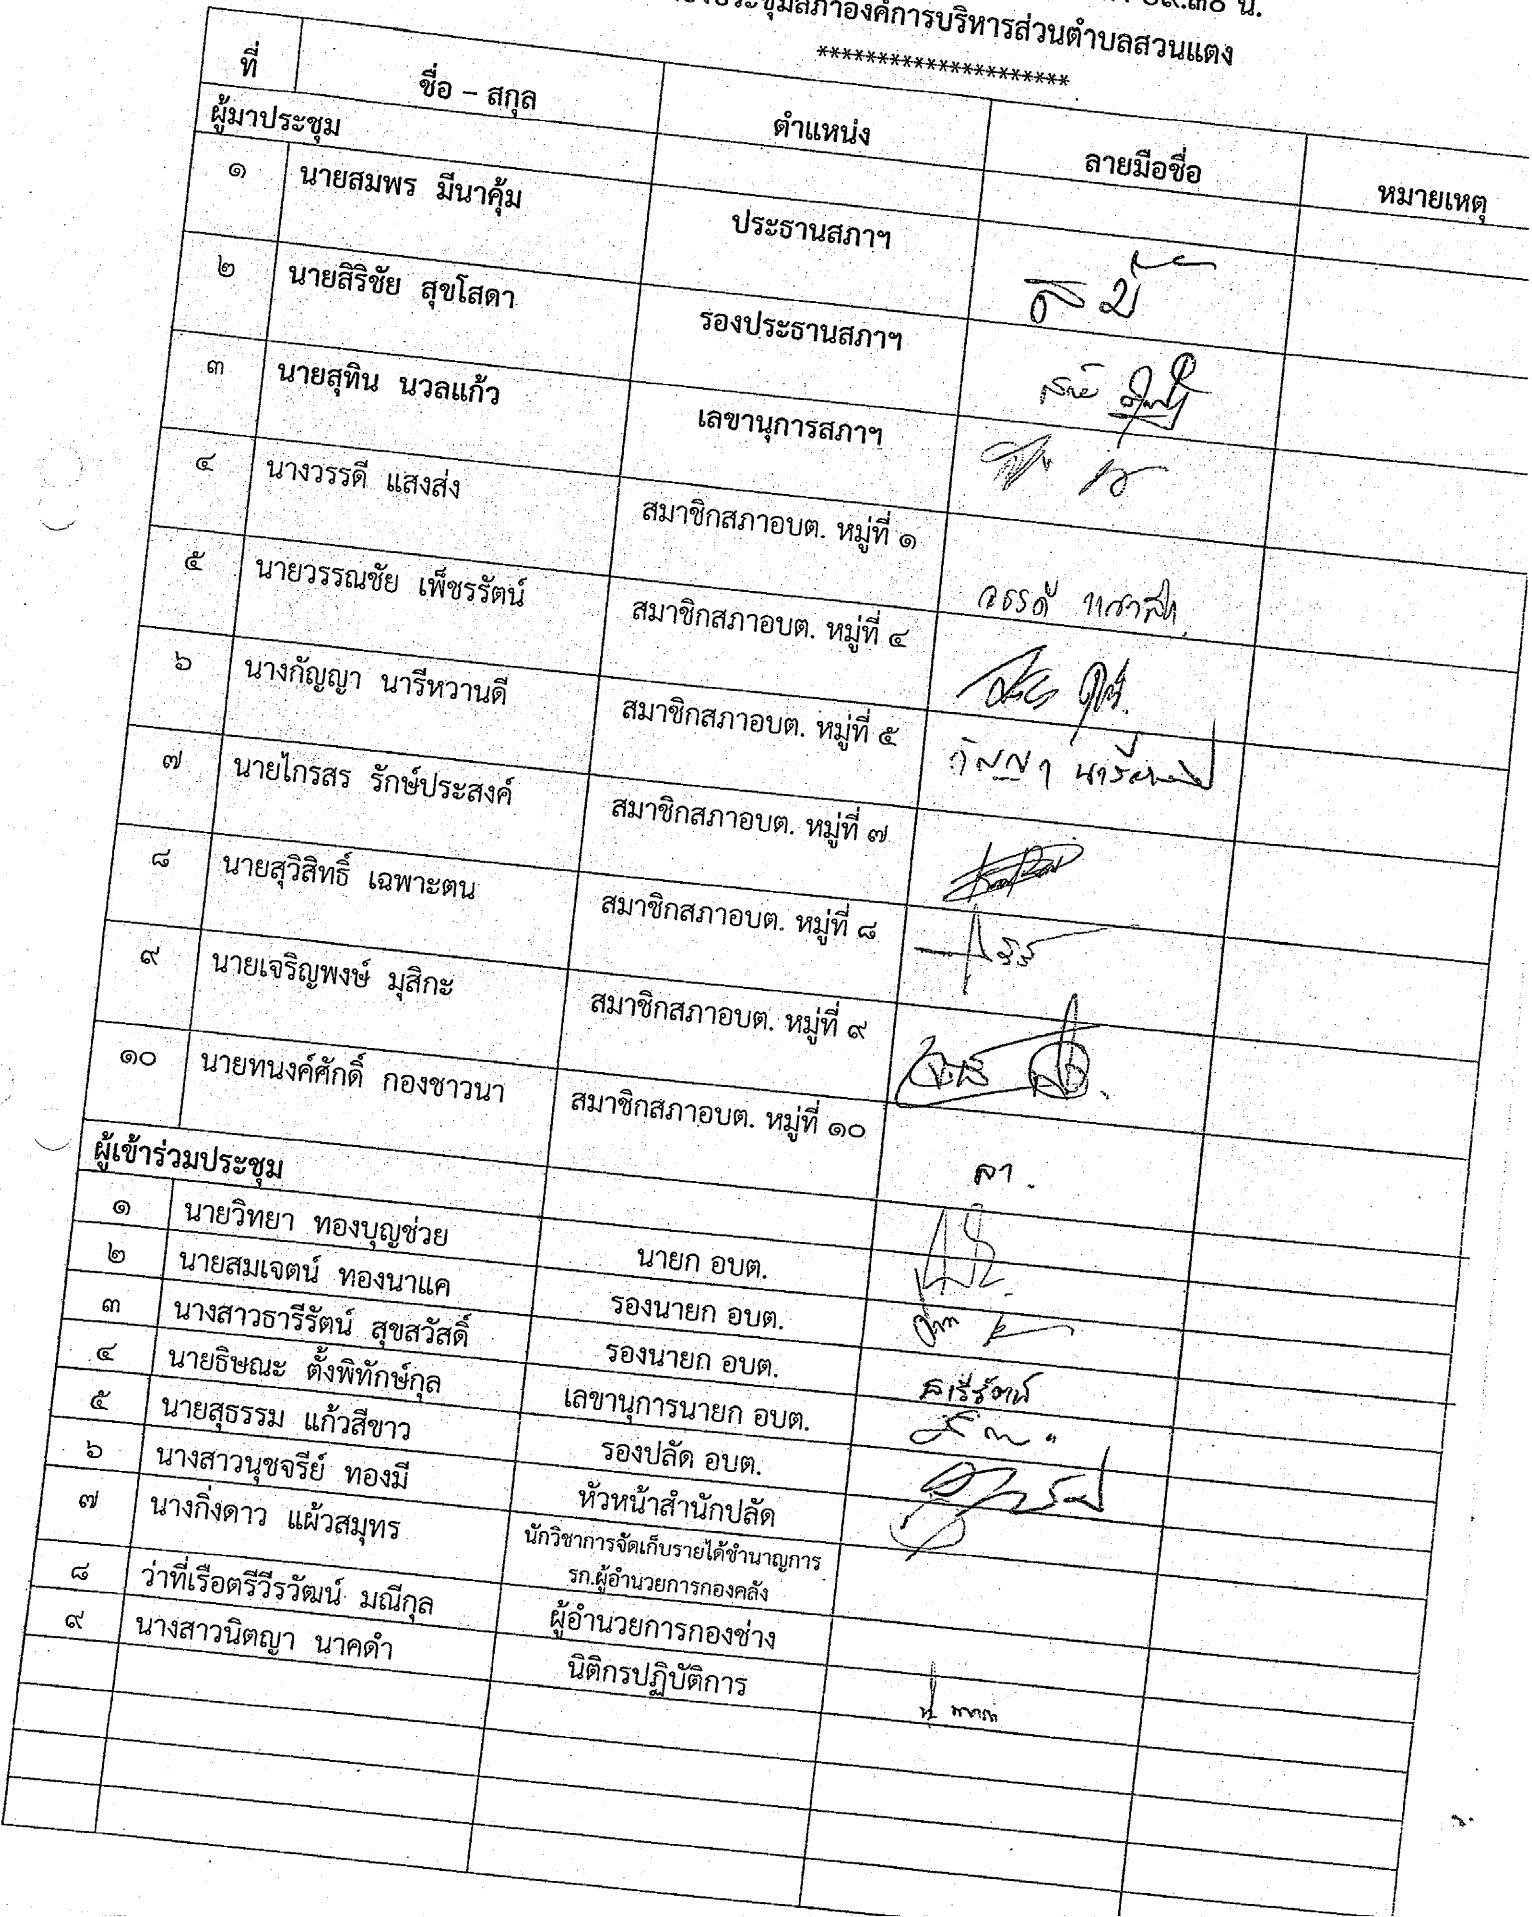 ๐๙.๓๐ น.
ประชุมสภาองค์การบริหารส่วนตำบลสวนแตง
*********************
ที่ ชื่อ – สกุล ตำแหน่ง ลายมือชื่อ หมายเหตุ
ผู้มาประชุม
๑ นายสมพร มีนาคุ้ม ประธานสภาฯ
๒ นายสิริชัย สุขโสดา รองประธานสภาฯ
๓ นายสุทิน นวลแก้ว เลขานุการสภาฯ
๔ นางวรรดี แสงส่ง สมาชิกสภาอบต. หมู่ที่ ๑ วรรดี แสงส่ง
๕ นายวรรณชัย เพ็ชรรัตน์ สมาชิกสภาอบต. หมู่ที่ ๔
๖ นางกัญญา นารีหวานดี สมาชิกสภาอบต. หมู่ที่ ๕ กัญญา นารีหวานดี
๗ นายไกรสร รักษ์ประสงค์ สมาชิกสภาอบต. หมู่ที่ ๗
๘ นายสุวิสิทธิ์ เฉพาะตน สมาชิกสภาอบต. หมู่ที่ ๘
๙ นายเจริญพงษ์ มุสิกะ สมาชิกสภาอบต. หมู่ที่ ๙
๑๐ นายทนงค์ศักดิ์ กองชาวนา สมาชิกสภาอบต. หมู่ที่ ๑๐ ลา.
ผู้เข้าร่วมประชุม
๑ นายวิทยา ทองบุญช่วย นายก อบต.
๒ นายสมเจตน์ ทองนาแค รองนายก อบต.
๓ นางสาวธารีรัตน์ สุขสวัสดิ์ รองนายก อบต. ธารีรัตน์
๔ นายธิษณะ ตั้งพิทักษ์กุล เลขานุการนายก อบต.
๕ นายสุธรรม แก้วสีขาว รองปลัด อบต.
๖ นางสาวนุชจรีย์ ทองมี หัวหน้าสำนักปลัด
๗ นางกิ่งดาว แผ้วสมุทร นักวิชาการจัดเก็บรายได้ชำนาญการ
รก.ผู้อำนวยการกองคลัง
๘ ว่าที่เรือตรีวีรวัฒน์ มณีกุล ผู้อำนวยการกองช่าง
๙ นางสาวนิตญา นาคดำ นิติกรปฏิบัติการ